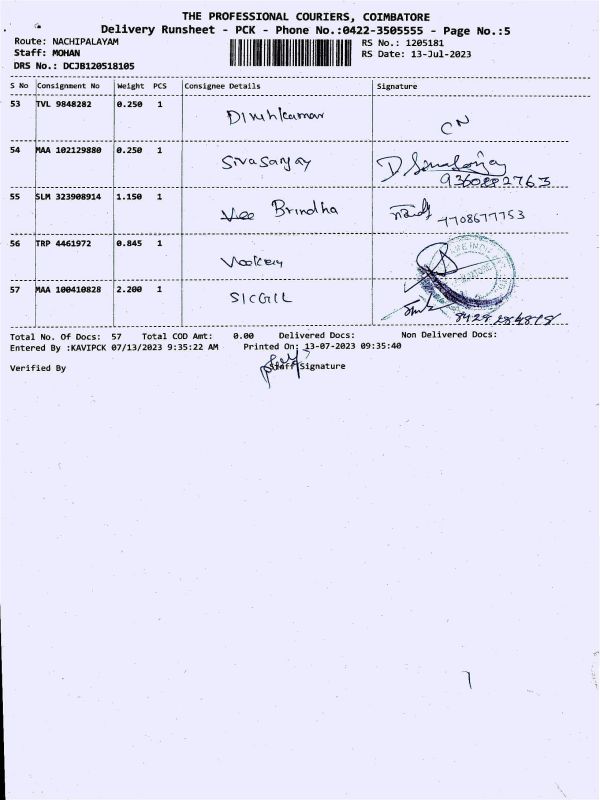 THE PROFESSIONAL COURIERS, COIMBATORE
Delivery Runsheet - PCK - Phone No.:0422-3505555 - Page No.:5
Route: NACHIPALAYAM
Staff: MOHAN
DRS No.: DCJB120518105
RS No.: 1205181
RS Date: 13-Jul-2023
S No Consignment No Weight PCS Consignee Details Signature
53 TVL 9848282 0.250 1
CN
54 MAA 102129880 0.250 1 Sivasanjay
9360882763
55 SLM 323908914 1.150 1 Vee Brindha
7708677753
56 TRP 4461972 0.845 1
57 MAA 100410828 2.200 1 SICGIL
Total No. Of Docs: 57 Total COD Amt: 0.00 Delivered Docs: Non Delivered Docs:
Entered By :KAVIPCK 07/13/2023 9:35:22 AM Printed On: 13-07-2023 09:35:40
Verified By Staff Signature